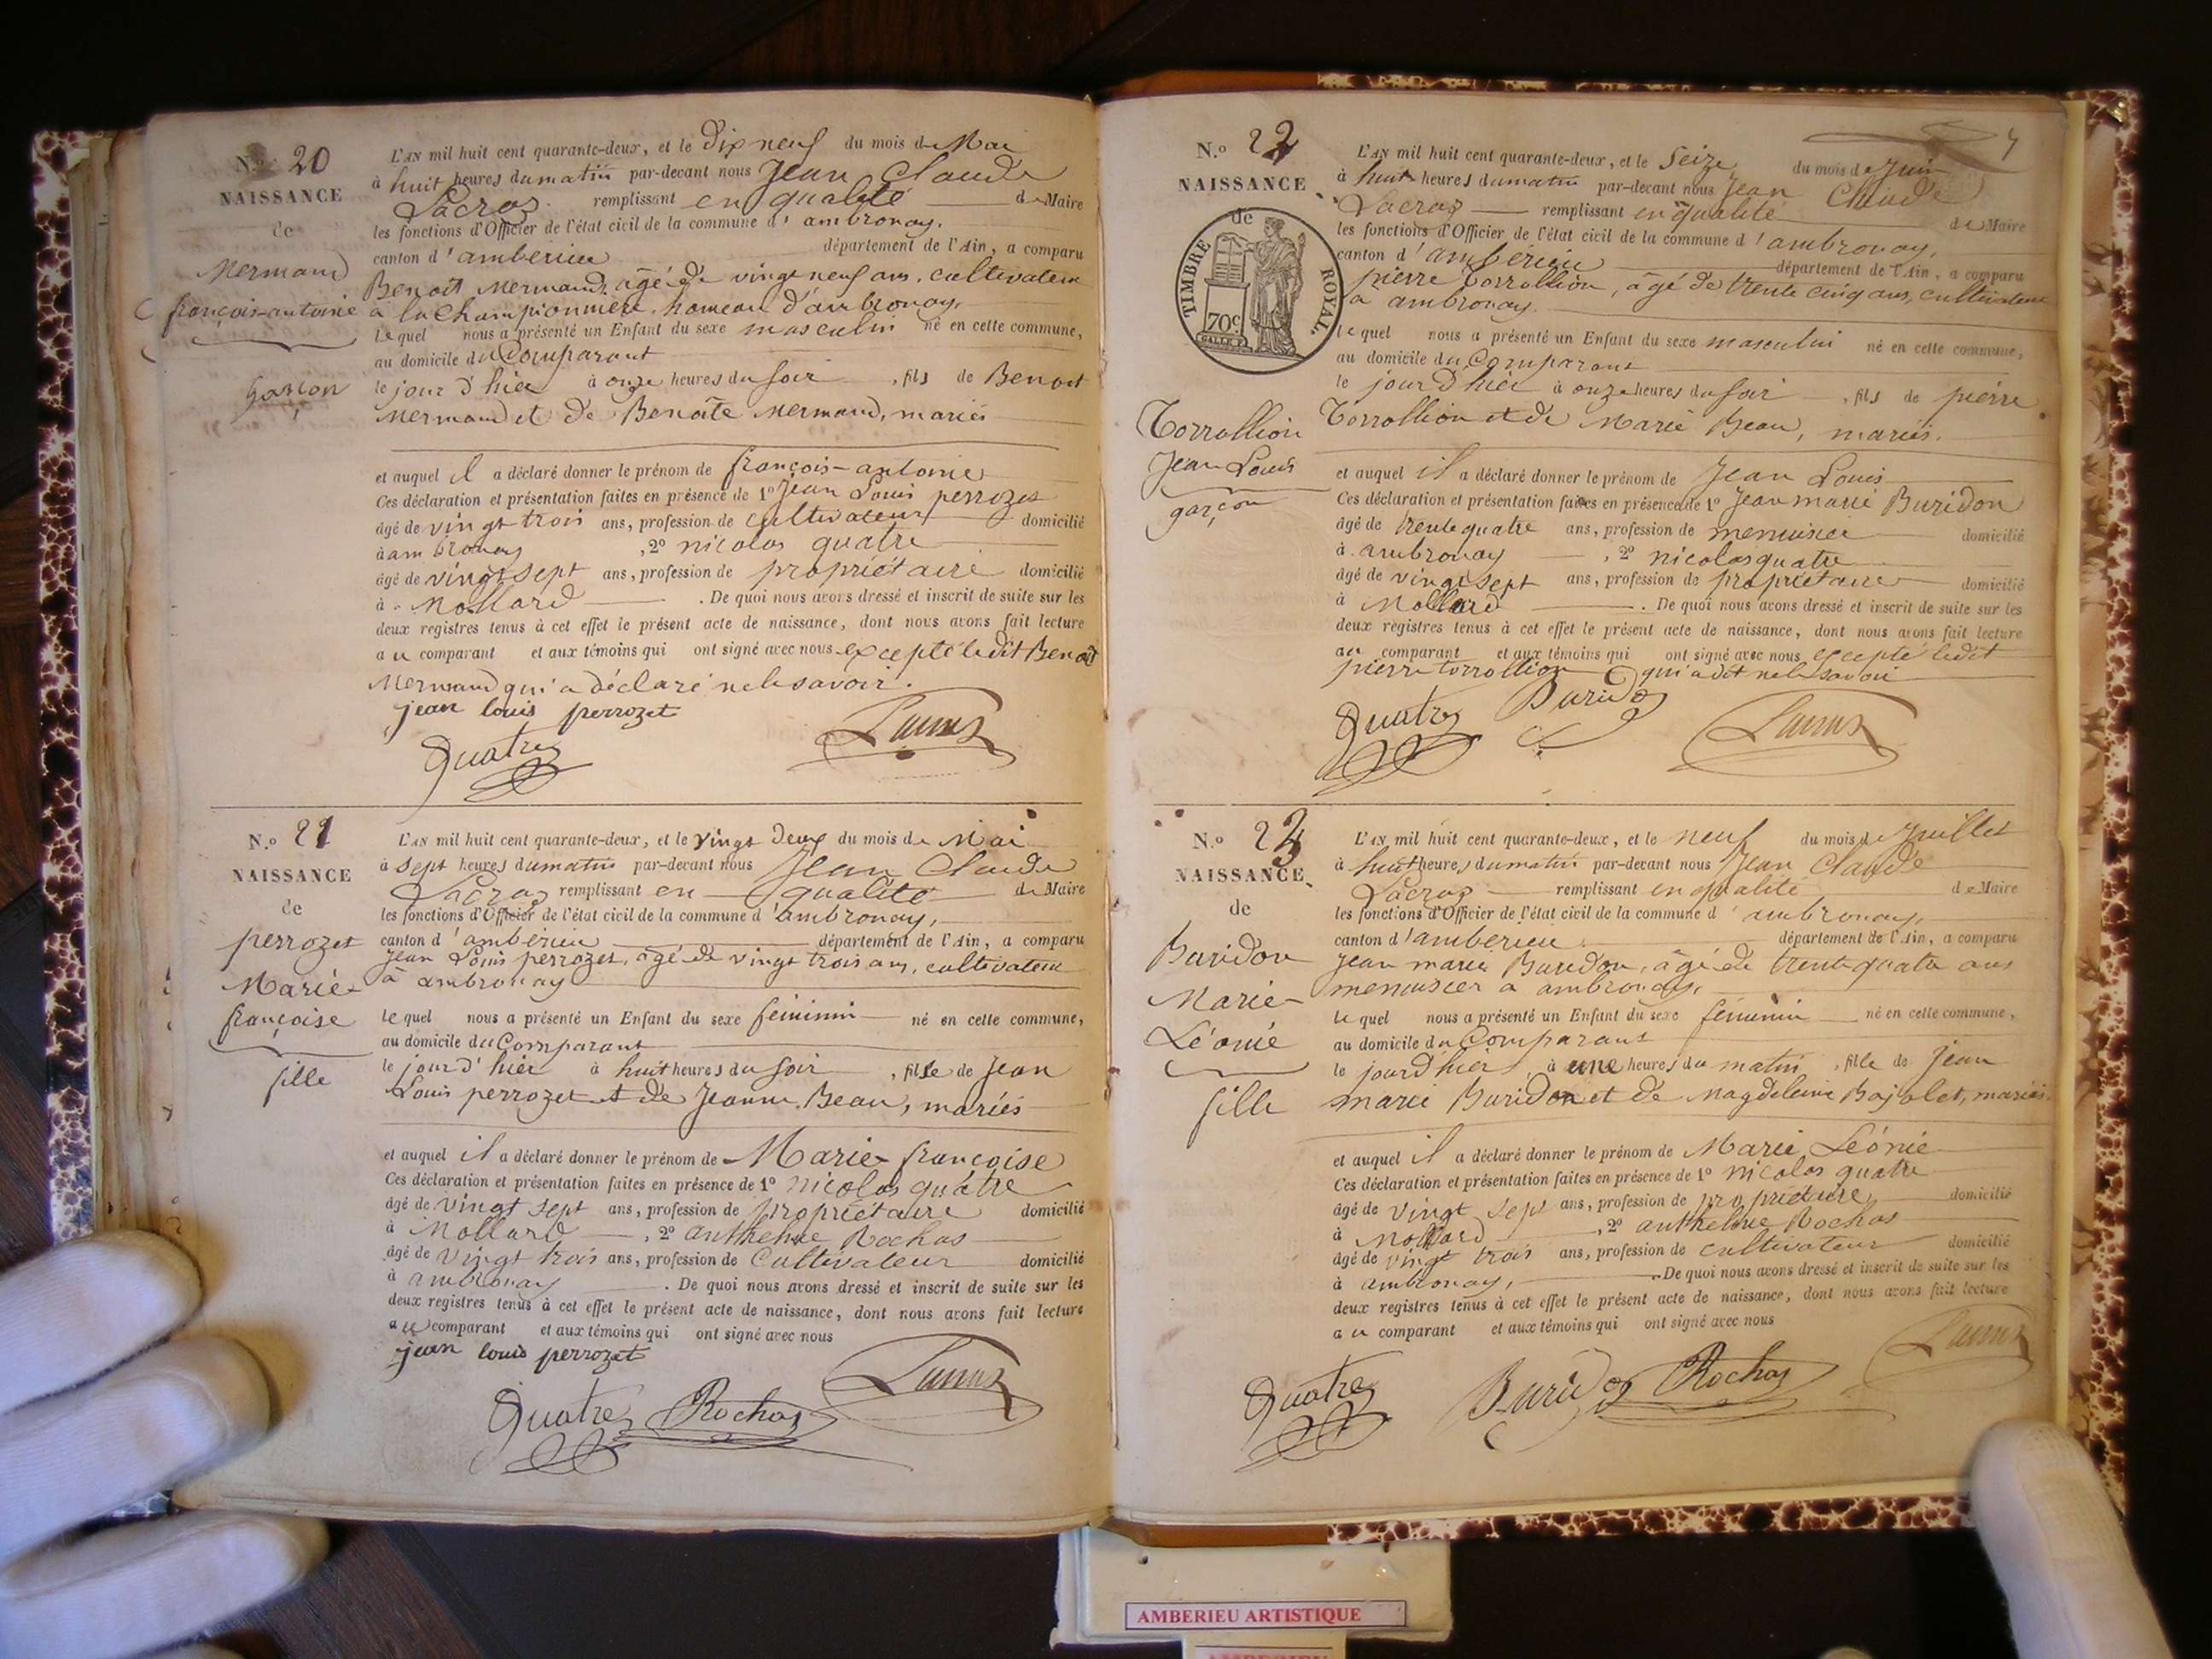 N.o 20
NAISSANCE
de
Mermand
françois-antoine
Garçon
L'AN mil huit cent quarante-deux, et le Dix neuf du mois de Mai
à huit heures du matin par-devant nous Jean Claude
Lacroz remplissant en qualité de Maire
les fonctions d'Officier de l'état civil de la commune d'ambronay,
canton d'amberieu département de l'Ain, a comparu
Benoit Mermand, âgé de vingt neuf ans, cultivateur
à la Championnière, hameau d'ambronay,
lequel nous a présenté un Enfant du sexe masculin né en cette commune,
au domicile du Comparant
le jour d'hier à onze heures du soir, fils de Benoit
Mermand et de Benoîte Mermand, mariés
et auquel il a déclaré donner le prénom de françois-antoine
Ces déclaration et présentation faites en présence de 1o Jean Louis perrozet
âgé de vingt trois ans, profession de cultivateur domicilié
à ambronay, 2o nicolas quatre
âgé de vingt sept ans, profession de propriétaire domicilié
à Mollard. De quoi nous avons dressé et inscrit de suite sur les
deux registres tenus à cet effet le présent acte de naissance, dont nous avons fait lecture
au comparant et aux témoins qui ont signé avec nous excepté ledit Benoit
Mermand qui a déclaré ne le savoir.
jean louis perrozet
Quatre
N.o 21
NAISSANCE
de
perrozet
Marie
françoise
fille
L'AN mil huit cent quarante-deux, et le vingt deux du mois de Mai
à sept heures du matin par-devant nous Jean Claude
Lacroz remplissant en qualité de Maire
les fonctions d'Officier de l'état civil de la commune d'ambronay,
canton d'amberieu département de l'Ain, a comparu
Jean Louis perrozet, âgé de vingt trois ans, cultivateur
à ambronay
lequel nous a présenté un Enfant du sexe féminin né en cette commune,
au domicile du Comparant
le jour d'hier à huit heures du soir, fille de Jean
Louis perrozet et de Jeanne Beau, mariés
et auquel il a déclaré donner le prénom de Marie françoise
Ces déclaration et présentation faites en présence de 1o nicolas quatre
âgé de vingt sept ans, profession de propriétaire domicilié
à Mollard, 2o anthelme Rochas
âgé de vingt trois ans, profession de Cultivateur domicilié
à ambronay. De quoi nous avons dressé et inscrit de suite sur les
deux registres tenus à cet effet le présent acte de naissance, dont nous avons fait lecture
au comparant et aux témoins qui ont signé avec nous
jean louis perrozet
Quatre Rochas
N.o 22
NAISSANCE
de
TIMBRE ROYAL.
70c
Torrollion
Jean Louis
garçon
L'AN mil huit cent quarante-deux, et le Seize du mois de Juin
à huit heures du matin par-devant nous Jean Claude
Lacroz remplissant en qualité de Maire
les fonctions d'Officier de l'état civil de la commune d'ambronay,
canton d'amberieu département de l'Ain, a comparu
pierre Torrollion, âgé de trente cinq ans, cultivateur
à ambronay.
lequel nous a présenté un Enfant du sexe masculin né en cette commune,
au domicile du Comparant
le jour d'hier à onze heures du soir, fils de pierre
Torrollion et de Marie Beau, mariés.
et auquel il a déclaré donner le prénom de Jean Louis
Ces déclaration et présentation faites en présence de 1o Jean marie Buridon
âgé de trente quatre ans, profession de menuisier domicilié
à ambronay, 2o nicolas quatre
âgé de vingt sept ans, profession de propriétaire domicilié
à Mollard. De quoi nous avons dressé et inscrit de suite sur les
deux registres tenus à cet effet le présent acte de naissance, dont nous avons fait lecture
au comparant et aux témoins qui ont signé avec nous excepté ledit
pierre torrollion qui a dit ne le savoir
Quatre Buridon
N.o 23
NAISSANCE
de
Buridon
Marie
Léonie
fille
L'AN mil huit cent quarante-deux, et le neuf du mois de Juillet
à huit heures du matin par-devant nous Jean Claude
Lacroz remplissant en qualité de Maire
les fonctions d'Officier de l'état civil de la commune d'ambronay,
canton d'amberieu département de l'Ain, a comparu
Jean marie Buridon, âgé de trente quatre ans
menuisier à ambronay,
lequel nous a présenté un Enfant du sexe féminin né en cette commune,
au domicile du Comparant
le jour d'hier, à une heures du matin, fille de Jean
marie Buridon et de Magdeleine Bajolet, mariés.
et auquel il a déclaré donner le prénom de Marie Léonie
Ces déclaration et présentation faites en présence de 1o nicolas quatre
âgé de vingt sept ans, profession de propriétaire domicilié
à Mollard, 2o anthelme Rochas
âgé de vingt trois ans, profession de cultivateur domicilié
à ambronay, De quoi nous avons dressé et inscrit de suite sur les
deux registres tenus à cet effet le présent acte de naissance, dont nous avons fait lecture
au comparant et aux témoins qui ont signé avec nous
Quatre Buridon Rochas
AMBERIEU ARTISTIQUE